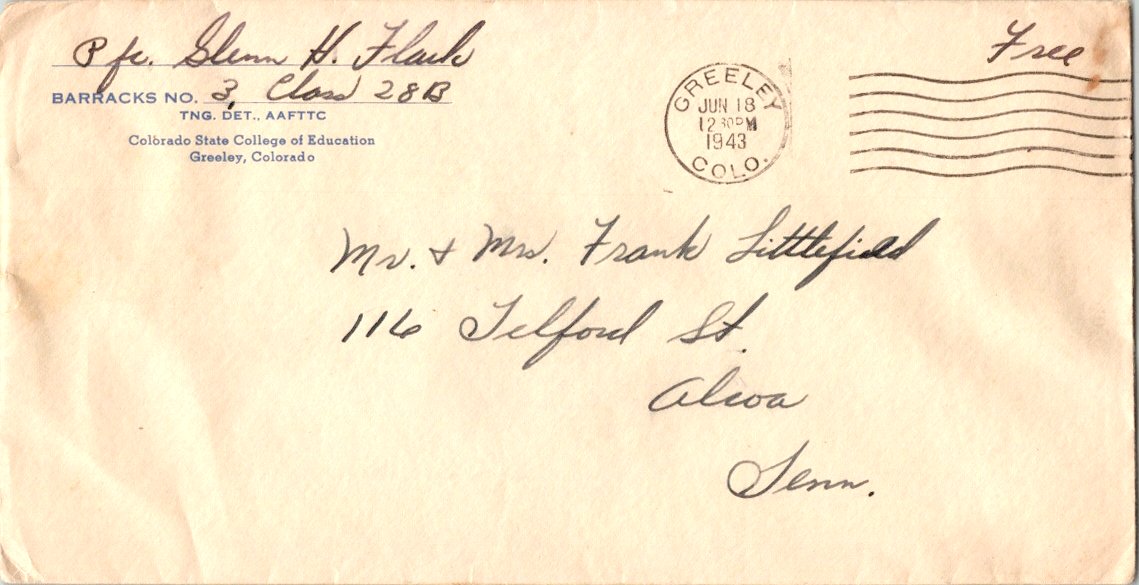 Pfc. Glenn H. Flack
BARRACKS NO. 3, Class 28B
TNG. DET., AAFTTC
Colorado State College of Education
Greeley, Colorado
Free
GREELEY
JUN 18
12 30 PM
1943
COLO.
Mr. & Mrs. Frank Littlefield
116 Telford St.
Alcoa
Tenn.